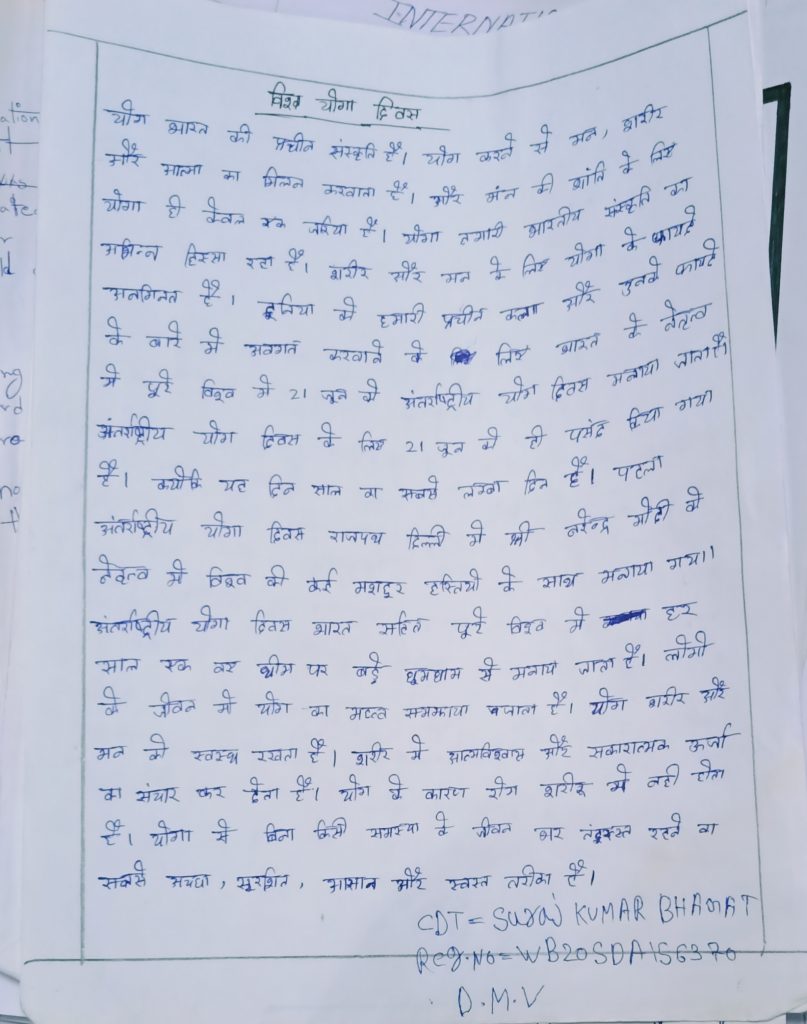 INTERNATI
विश्व योगा दिवस
योग भारत की प्रचीन संस्कृति है। योग करने से मन, शरीर
और आत्मा का मिलन करवाता है। और मंन की शांति के लिए
योगा ही केवल एक जरिया है। योगा तमारी भारतीय संस्कृति का
अभिन्न हिस्सा रहा है। शरीर और मन के लिए योगा के फायदे
अनगिनत है। दूनिया को हमारी प्रचीन कला और उनके फायदे
के बारे मे अवगत करवाने के लिए भारत के नेतृत्व
मे पूरे विश्व मे 21 जून को अंतर्राष्ट्रीय योग दिवस मनाया जाता है।
अंतर्राष्ट्रीय योग दिवस के लिए 21 जून को ही पसंद किया गया
है। क्योकि यह दिन साल का सबसे लम्बा दिन है। पहला
अंतर्राष्ट्रीय योगा दिवस राजपथ दिल्ली मे श्री नरेन्द्र मोदी के
नेतृत्व मे विश्व की कई मशहूर हस्तियो के साथ मनाया गया।
अंतर्राष्ट्रीय योगा दिवस भारत सहित पूरे विश्व मे हर
साल एक नए थीम पर बड़े धूमधाम से मनाया जाता है। लोगो
के जीवन मे योग का महत्व समझाया जाता है। योग शरीर और
मन को स्वस्थ रखता है। शरीर मे आत्मविश्वास और सकारात्मक ऊर्जा
का संचार कर देता है। योग के कारण रोग शरीर मे नही होता
है। योगा से बिना किसी समस्या के जीवन भर तंदूरूस्त रहने का
सबसे अच्छा, सुरक्षित, आसान और स्वस्त तरीका है।
CDT = Suraj KUMAR BHAGAT
Reg.No = WB20SDA156370
D.M.V